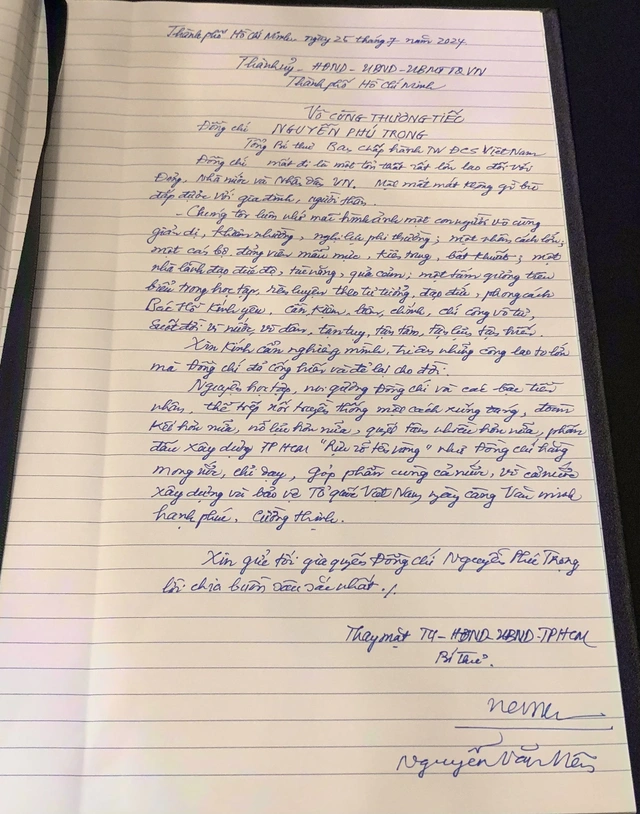 Thành phố Hồ Chí Minh, ngày 25 tháng 7 năm 2024
Thành ủy - HĐND - UBND - UBMTTQ.VN
Thành phố Hồ Chí Minh
Vô cùng THƯƠNG TIẾC
Đồng chí NGUYỄN PHÚ TRỌNG
Tổng Bí thư Ban Chấp hành TW ĐCS Việt Nam
Đồng chí mất đi là một tổn thất rất lớn lao đối với
Đảng, Nhà nước và Nhân dân VN. Mất mát không gì bù
đắp được với gia đình, người thân.
- Chúng tôi luôn nhớ mãi hình ảnh một con người vô cùng
giản dị, khiêm nhường, nghị lực phi thường; một nhân cách lớn;
một cán bộ, đảng viên mẫu mực, kiên trung, bất khuất; một
nhà lãnh đạo đức độ, tài năng, quả cảm; một tấm gương tiêu
biểu trong học tập, rèn luyện theo tư tưởng, đạo đức, phong cách
Bác Hồ Kính yêu. Cần, Kiệm, liêm, chính, chí công vô tư,
suốt đời vì nước, vì dân, tận tụy, tận tâm, tận lực, tận hiến.
Xin Kính cẩn nghiêng mình, tri ân những công lao to lớn
mà Đồng chí đã cống hiến và để lại cho đời.
Nguyện học tập, noi gương Đồng chí và các bậc tiền
nhân, tiếp nối truyền thống một cách xứng đáng, đoàn
kết hơn nữa, nỗ lực hơn nữa, quyết tâm nhiều hơn nữa, phấn
đấu xây dựng TP HCM "Rực rỡ tên vàng" như Đồng chí hằng
mong ước, chỉ dạy, góp phần cùng cả nước, vì cả nước
xây dựng và bảo vệ Tổ quốc Việt Nam, ngày càng Văn minh
hạnh phúc, Cường thịnh.
Xin gửi tới gia quyến Đồng chí Nguyễn Phú Trọng
lời chia buồn sâu sắc nhất./.
Thay mặt TU - HĐND - UBND - TPHCM
Bí thư.
Nguyễn Văn Nên